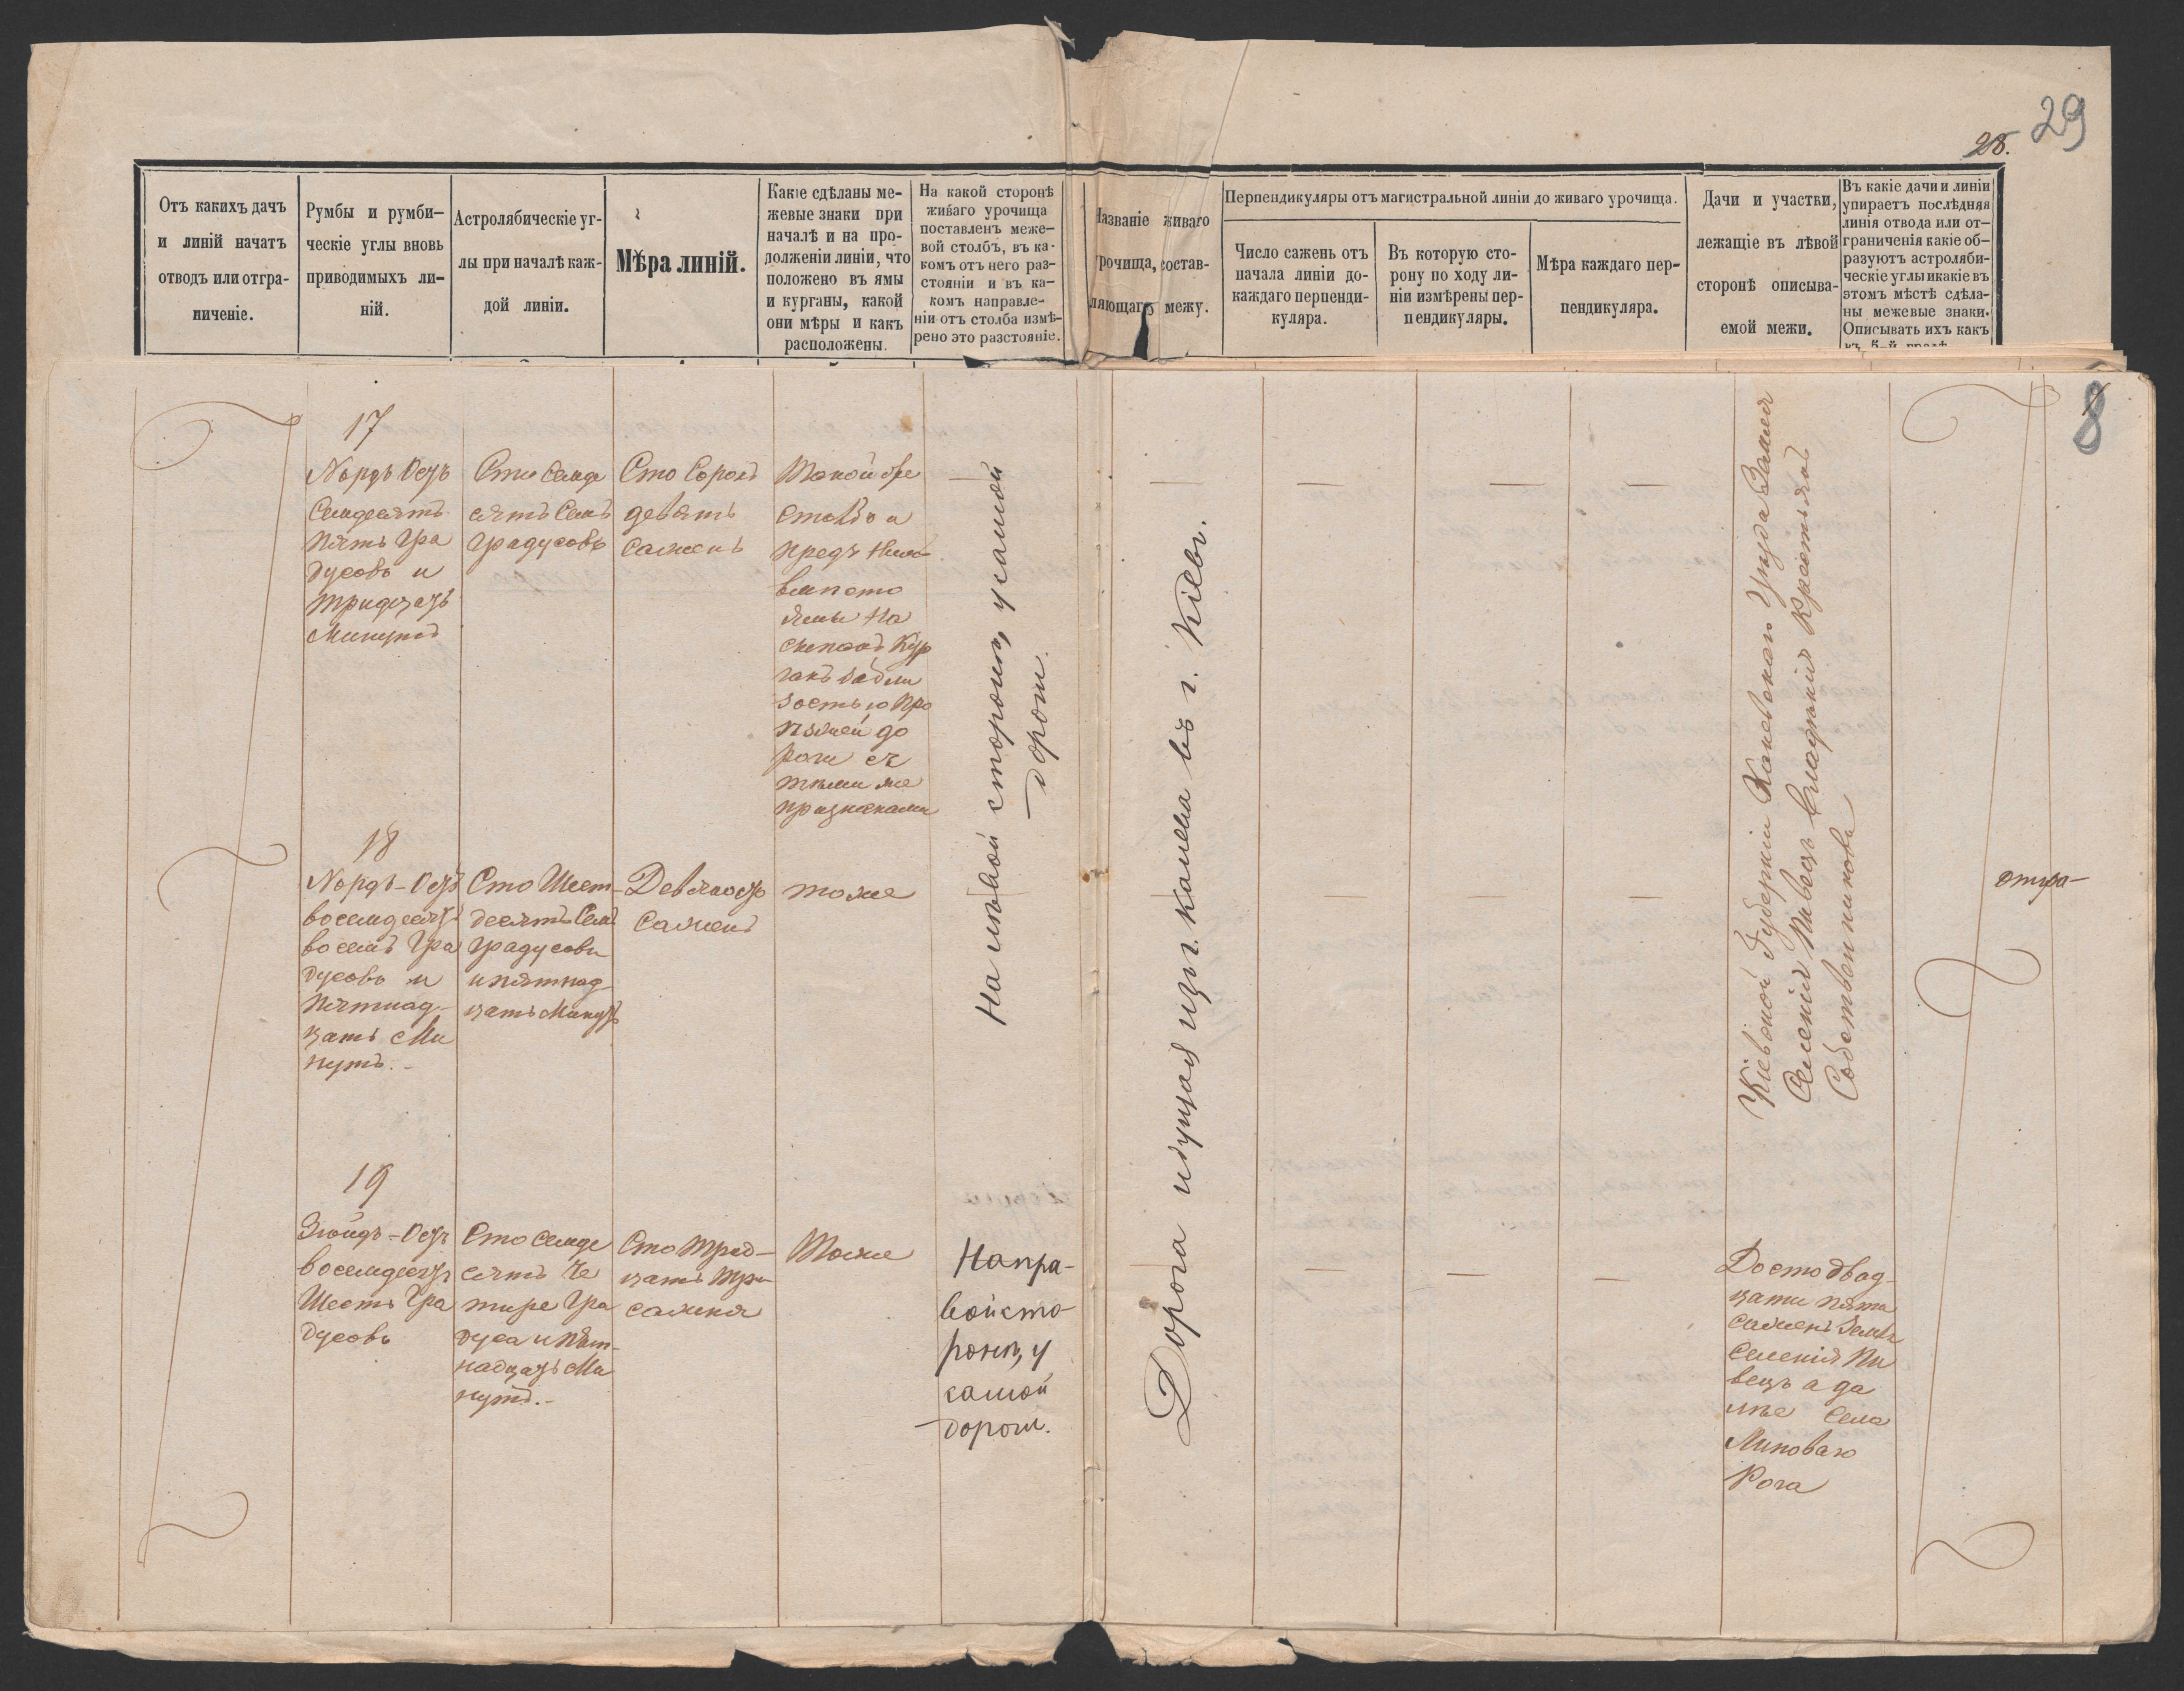 29
28.
Отъ какихъ дачъ
и линій начатъ
отводъ или отгра-
ниченіе.
Румбы и румби-
ческіе углы вновь
приводимыхъ ли-
ній.
Астролябическіе уг-
лы при началѣ каж-
дой линіи.
Мѣра линій.
Какіе сдѣланы ме-
жевые знаки при
началѣ и на про-
долженіи линіи, что
положено въ ямы
и курганы, какой
они мѣры и какъ
расположены.
На какой сторонѣ
живаго урочища
поставленъ меже-
вой столбъ, въ ка-
комъ отъ него раз-
стояніи и въ ка-
комъ направле-
ніи отъ столба измѣ-
рено это разстояніе.
Названіе живаго
урочища, состав-
ляющаго межу.
Перпендикуляры отъ магистральной линіи до живаго урочища.
Число сажень отъ
начала линіи до-
каждаго перпенди-
куляра.
Въ которую сто-
рону по ходу ли-
ніи измѣрены пер-
пендикуляры.
Мѣра каждаго пер-
пендикуляра.
Дачи и участки,
лежащіе въ лѣвой
сторонѣ описыва-
емой межи.
Въ какіе дачи и линіи
упираетъ послѣдняя
линія отвода или от-
граниченія какіе об-
разуютъ астроляби-
ческіе углы и какіе въ
этомъ мѣстѣ сдѣла-
ны межевые знаки.
Описывать ихъ какъ
въ 5-й графѣ
8
17
Нордъ Остъ
Семдесятъ
пять Гра
дусовъ и
тридцать
Минутъ
Сто Семде
сятъ Семь
Градусовъ
Сто Сорокъ
девять
Сажень
Такой же
столбъ и
предъ нимъ
вмѣсто
ямы на
сыпанъ Кур
ганъ за бли
зостью про
ѣзжей до
роги съ
тѣми же
признаками
На лѣвой сторонѣ, у самой
дороги.
Дорога идущая изъ г. Канева въ г. Кіевъ.
Кіевской Губерніи Каневскаго Уѣзда Земля
Селенія Пивецъ Владѣнія Крестьянъ
Собственниковъ
18
Нордъ-Остъ
восемдесятъ
восемь Гра
дусовъ и
пятнад-
цать Ми
нутъ.-
Сто Шест-
десятъ Семь
Градусовъ
и пятнад-
цать Минутъ
Девяносто
Сажень
тоже
отгра-
19
Зюйдъ-Остъ
восемдесятъ
Шесть Гра
дусовъ
Сто Семде
сятъ Че
тыре Гра
дуса и пят-
надцать Ми
нутъ.-
Сто Трид-
цать Три
сажня
Тоже
На пра-
вой сто-
ронѣ, у
самой
дороги.
До сто двад-
цати пяти
сажень Земля
Селенія Пи
вецъ а да
лѣе Села
Липоваго
Рога